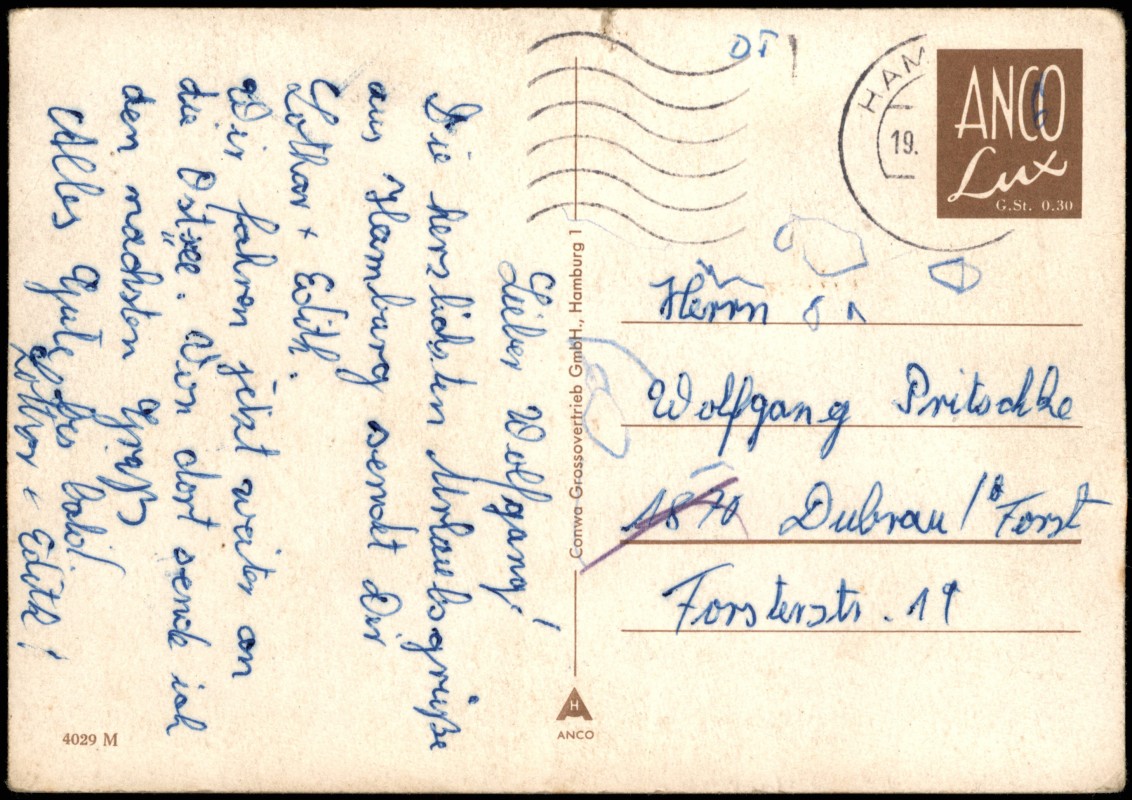 Lieber Wolfgang!
Die herzlichsten Urlaubsgrüße
aus Hamburg sendet Dir
Lothar + Edith.
Wir fahren jetzt weiter an
die Ostsee. Von dort sende ich
den nächsten Gruß
Alles Gute bis bald
Lothar + Edith!
4029 M
Conwa Grossovertrieb GmbH., Hamburg 1
H
ANCO
DT
HAM
19.
ANCO
Lux
G.St. 0.30
Herrn
Wolfgang Pritschke
Dubrau / Forst
Forsterstr. 19